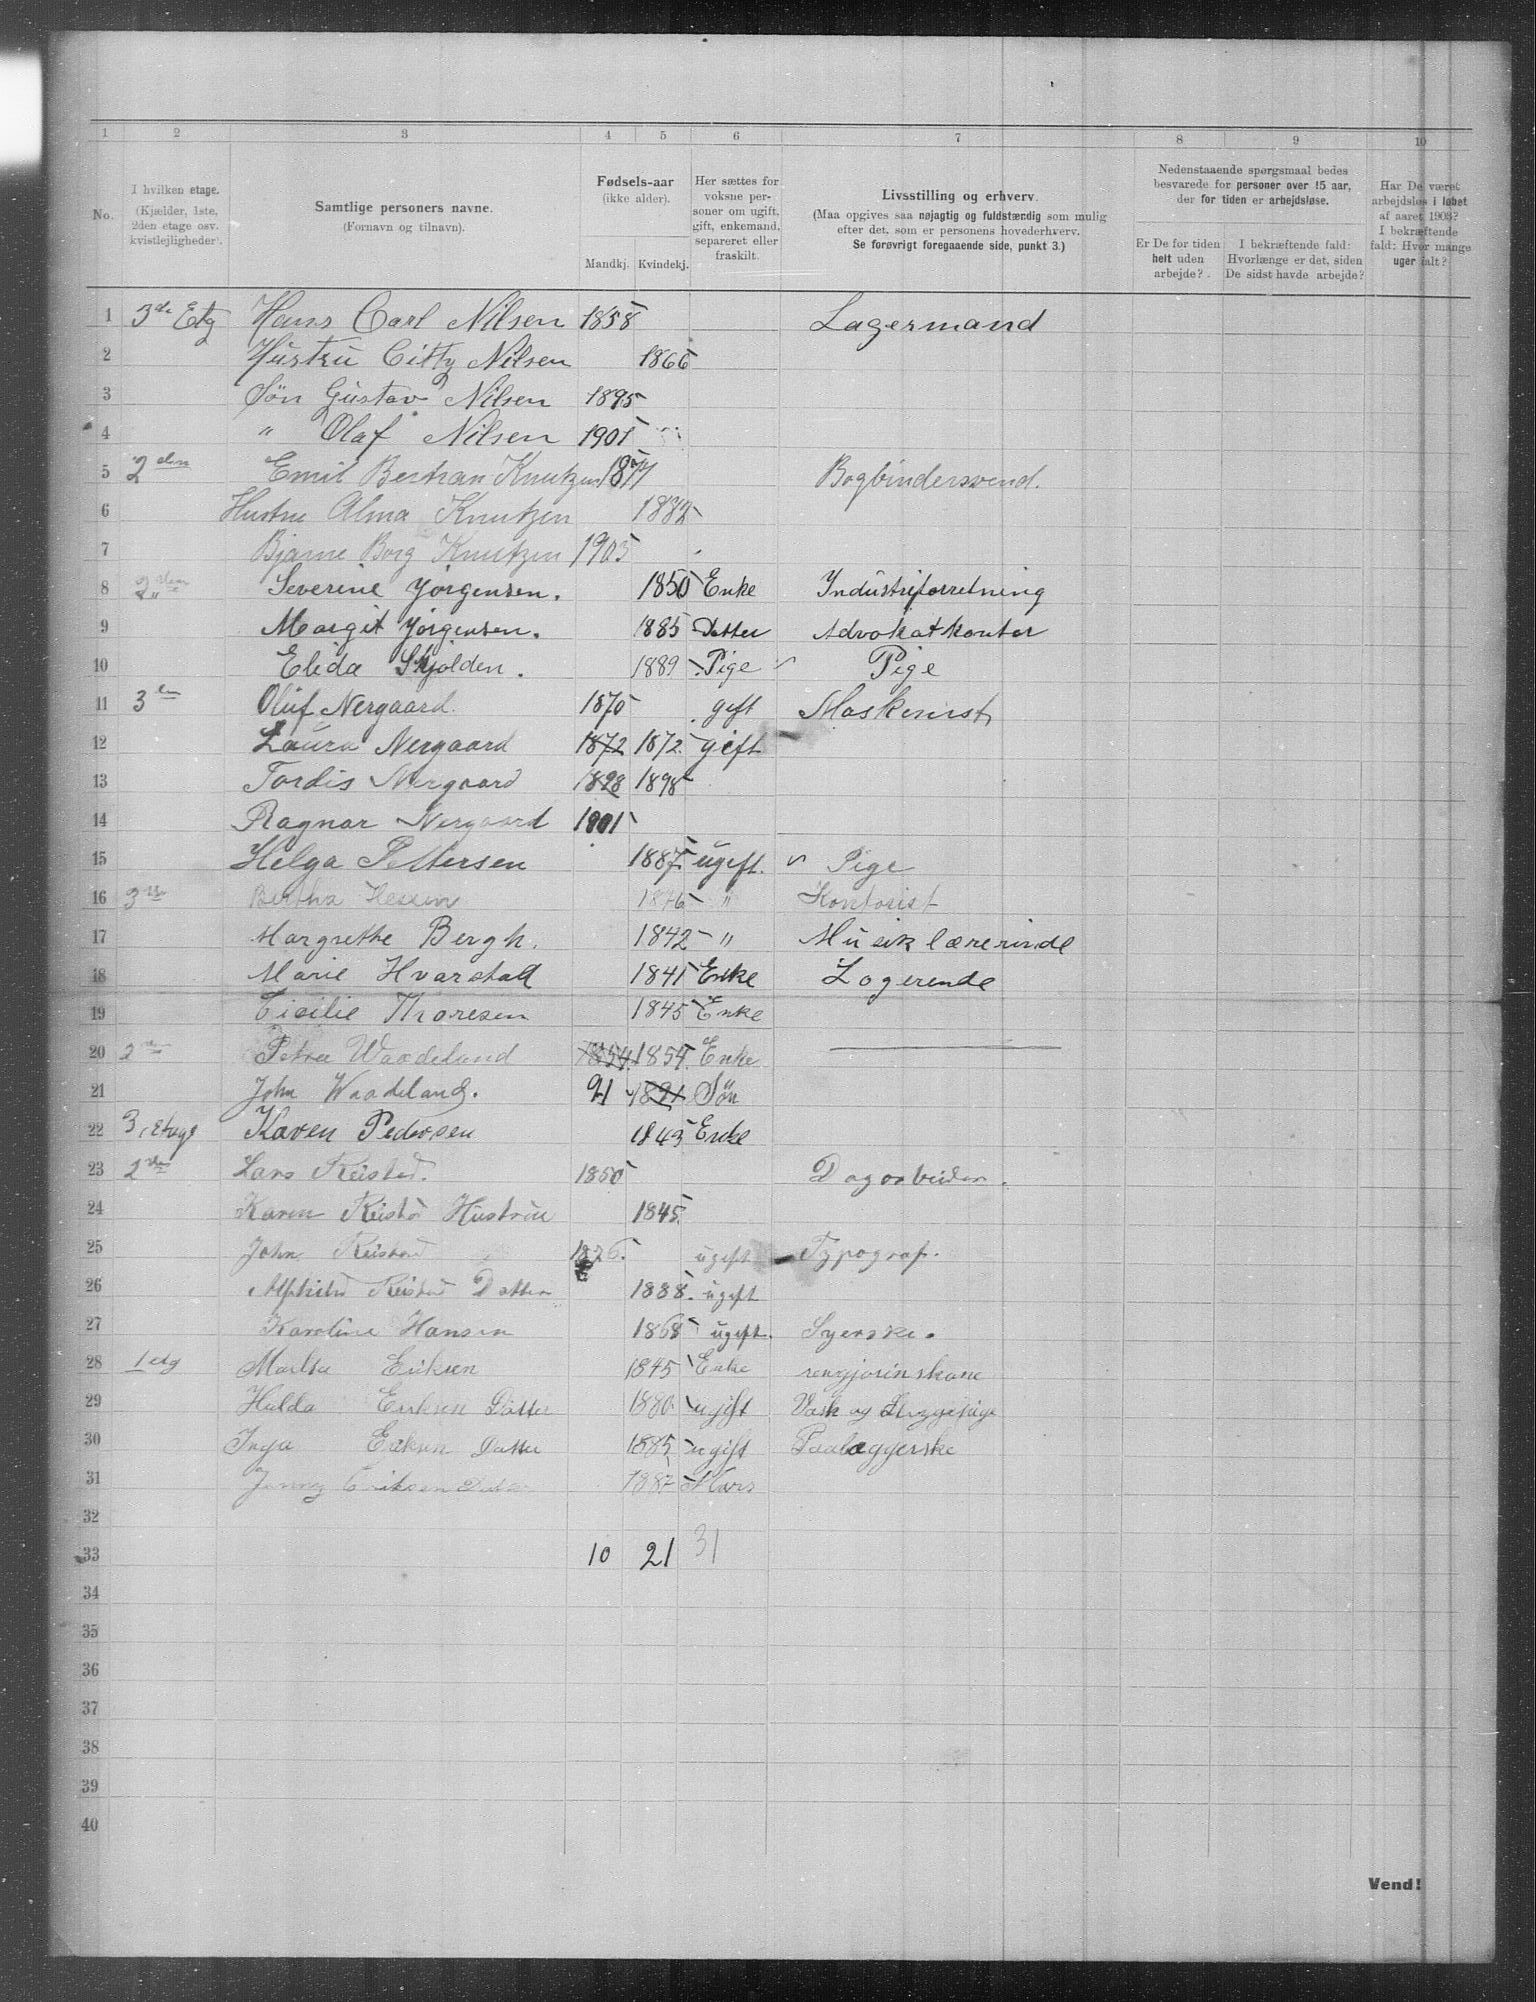 1 2 3 4 5 6 7 8 9 10
No.
I hvilken etage.
(Kjælder, 1ste,
2den etage osv.
kvistlejligheder).
Samtlige personers navne.
(Fornavn og tilnavn).
Fødsels-aar
(ikke alder).
Mandkj. Kvindekj.
Her sættes for
voksne per-
soner om ugift,
gift, enkemand,
separeret eller
fraskilt.
Livsstilling og erhverv.
(Maa opgives saa nøjagtig og fuldstændig som mulig
efter det, som er personens hovederhverv.
Se forøvrigt foregaaende side, punkt 3.)
Nedenstaaende spørgsmaal bedes
besvarede for personer over 15 aar,
der for tiden er arbejdsløse.
Er De for tiden
helt uden
arbejde?
I bekræftende fald:
Hvorlænge er det, siden
De sidst havde arbejde?
Har De været
arbejdsløs i løbet
af aaret 1903?
I bekræftende
fald: Hvor mange
uger ialt?
1 3de Etg Hans Carl Nilsen 1858 Lagermand
2 Hustru Citty Nilsen 1866
3 Søn Gustav Nilsen 1895
4 " Olaf Nilsen 1901
5 2den Emil Bertran Knutzen 1877 Bogbindersvend.
6 Hustru Alma Knutzen 1882
7 Bjarne Borg Knutzen 1903
8 2den Severine Jørgensen. 1850 Enke Industriforretning
9 Margit Jørgensen. 1885 Datter Advokatkontor
10 Elida Skjolden. 1889 Pige Pige
11 3de Oluf Nergaard. 1870 gift Maskenist
12 Laura Nergaard 1872 1872 gift
13 Tordis Nergaard 1898 1898
14 Ragnar Nergaard 1901
15 Helga Pettersen 1887 ugift. Pige
16 3de Bertha 1876 " Kontorist
17 Margrethe Bergh. 1842 " Musiklærerinde
18 Marie Hvarstad 1841 Enke Logerende
19 Cicilie Thoresen 1845 Enke
20 2den Petra Waadeland 1854 1854. Enke
21 John Waadeland. 91 1891 Søn
22 3 Etage Karen Pedersen 1843 Enke
23 2den Lars Reistad. 1850 Dagarbeider.
24 Karen Reistad Hustrue 1845.
25 John Reistad 1876. ugift Typograf.
26 Alfhild Reistad Datter 1888. ugift
27 Karoline Hansen 1868 ugift. Syerske.
28 1 etg Martha Eriksen 1845 Enke rengjørinskone
29 Hulda Eriksen Datter 1880 ugift Vask og Strygepige
30 Inga Eriksen Datter 1885 ugift Paalæggerske
31 Jenny Eriksen Datter 1887
32
33 10 21 31
34
35
36
37
38
39
40
Vend!